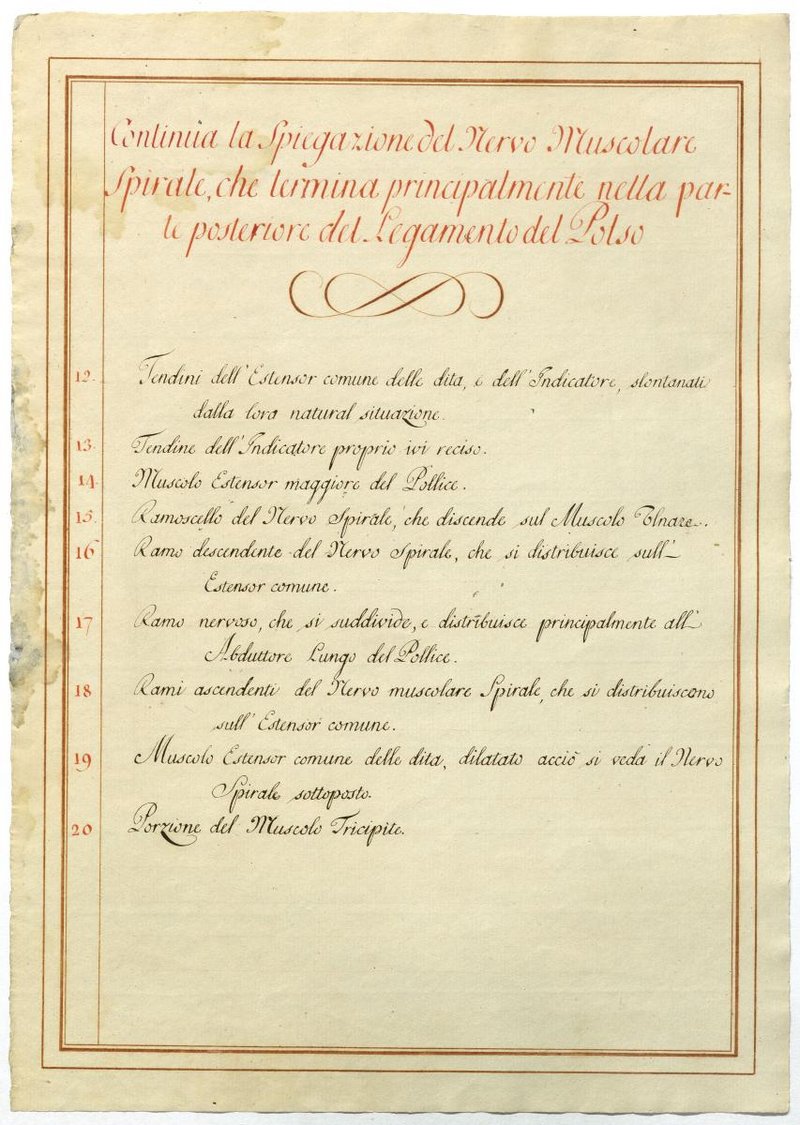 Continùa la Spiegazione del Nervo Muscolare
Spirale, che termina principalmente nella par-
te posteriore del Legamento del Polso
12. Tendini dell' Estensor comune delle dita, e dell' Indicatore, slontanati
dalla lora natural situazione.
13. Tendine dell' Indicatore proprio ivi reciso.
14. Muscolo Estensor maggiore del Pollice.
15. Ramoscello del Nervo Spirale, che discende sul Muscolo Ulnare.
16 Ramo descendente del Nervo Spirale, che si distribuisce sull'
Estensor comune.
17 Ramo nervoso, che si suddivide, e distribuisce principalmente all'
Abduttore Lungo del Pollice.
18 Rami ascendenti del Nervo muscolare Spirale, che si distribuiscono
sull' Estensor comune.
19 Muscolo Estensor comune delle dita, dilatato acciò si veda il Nervo
Spirale sottoposto.
20 Porzione del Muscolo Tricipite.